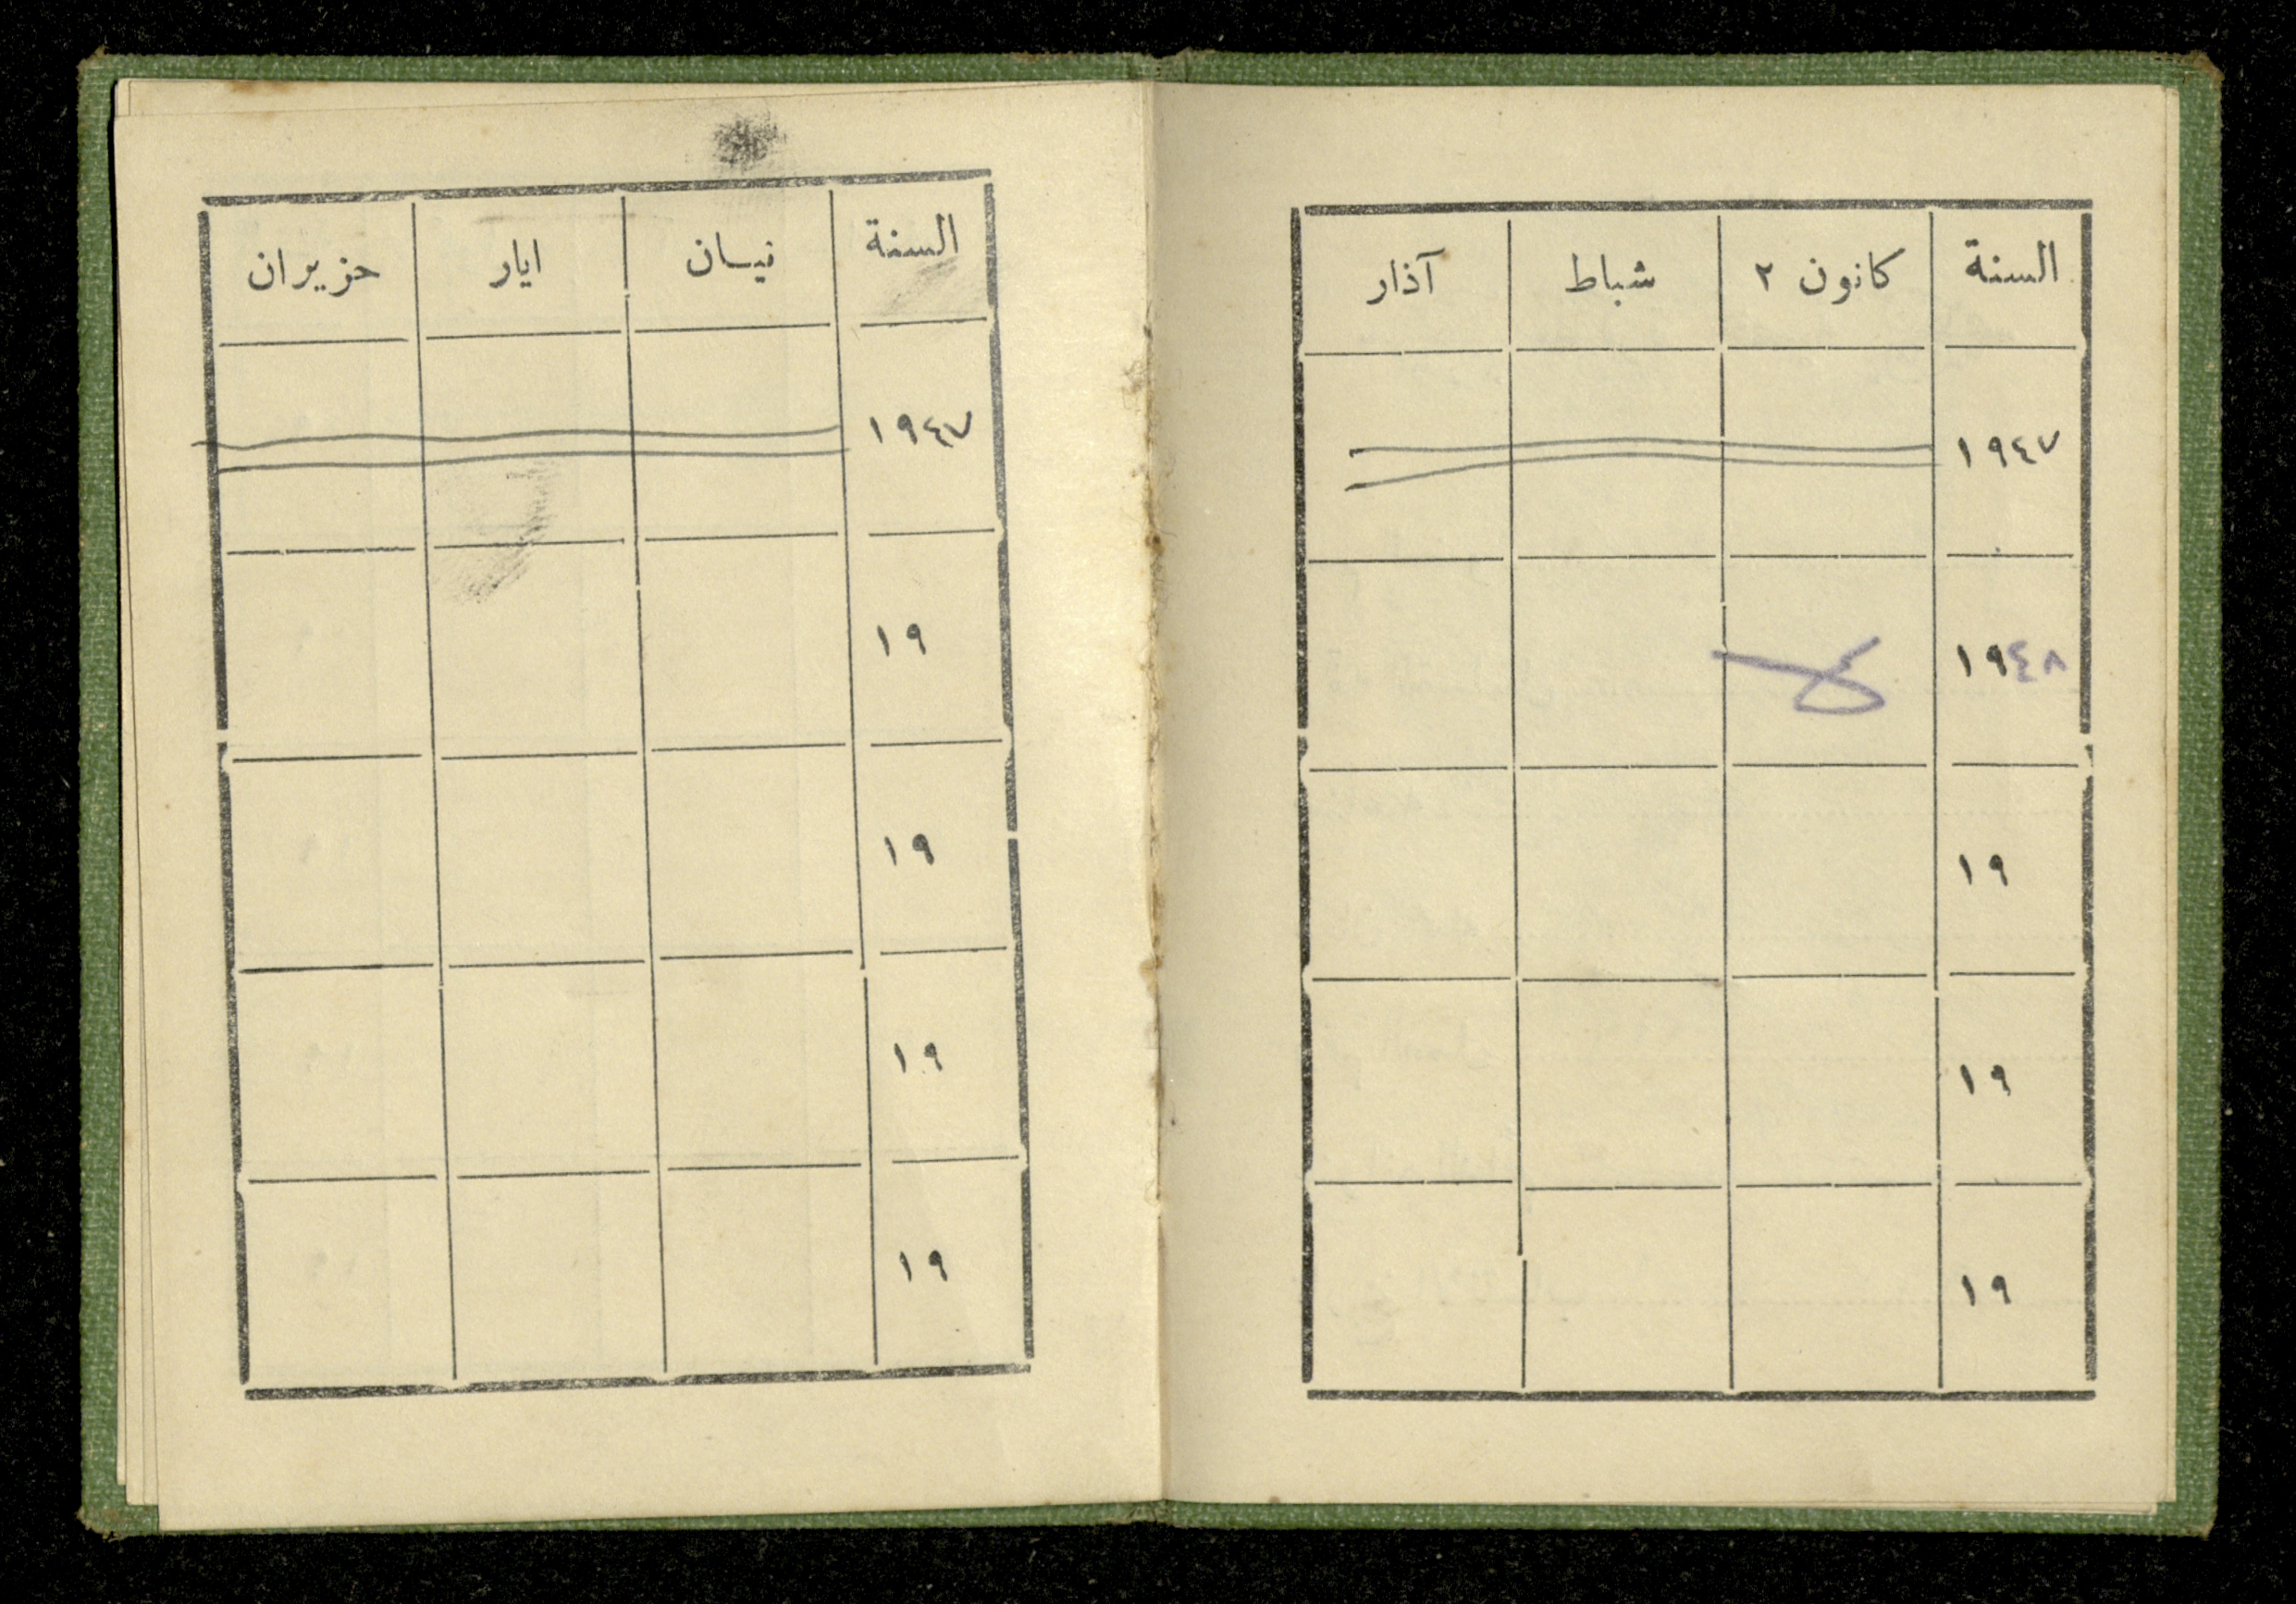 السنة كانون ٢ شباط آذار
١٩٤٧
١٩٤٨
١٩
١٩
١٩
السنة نيسان ايار حزيران
١٩٤٧
١٩
١٩
١٩
١٩